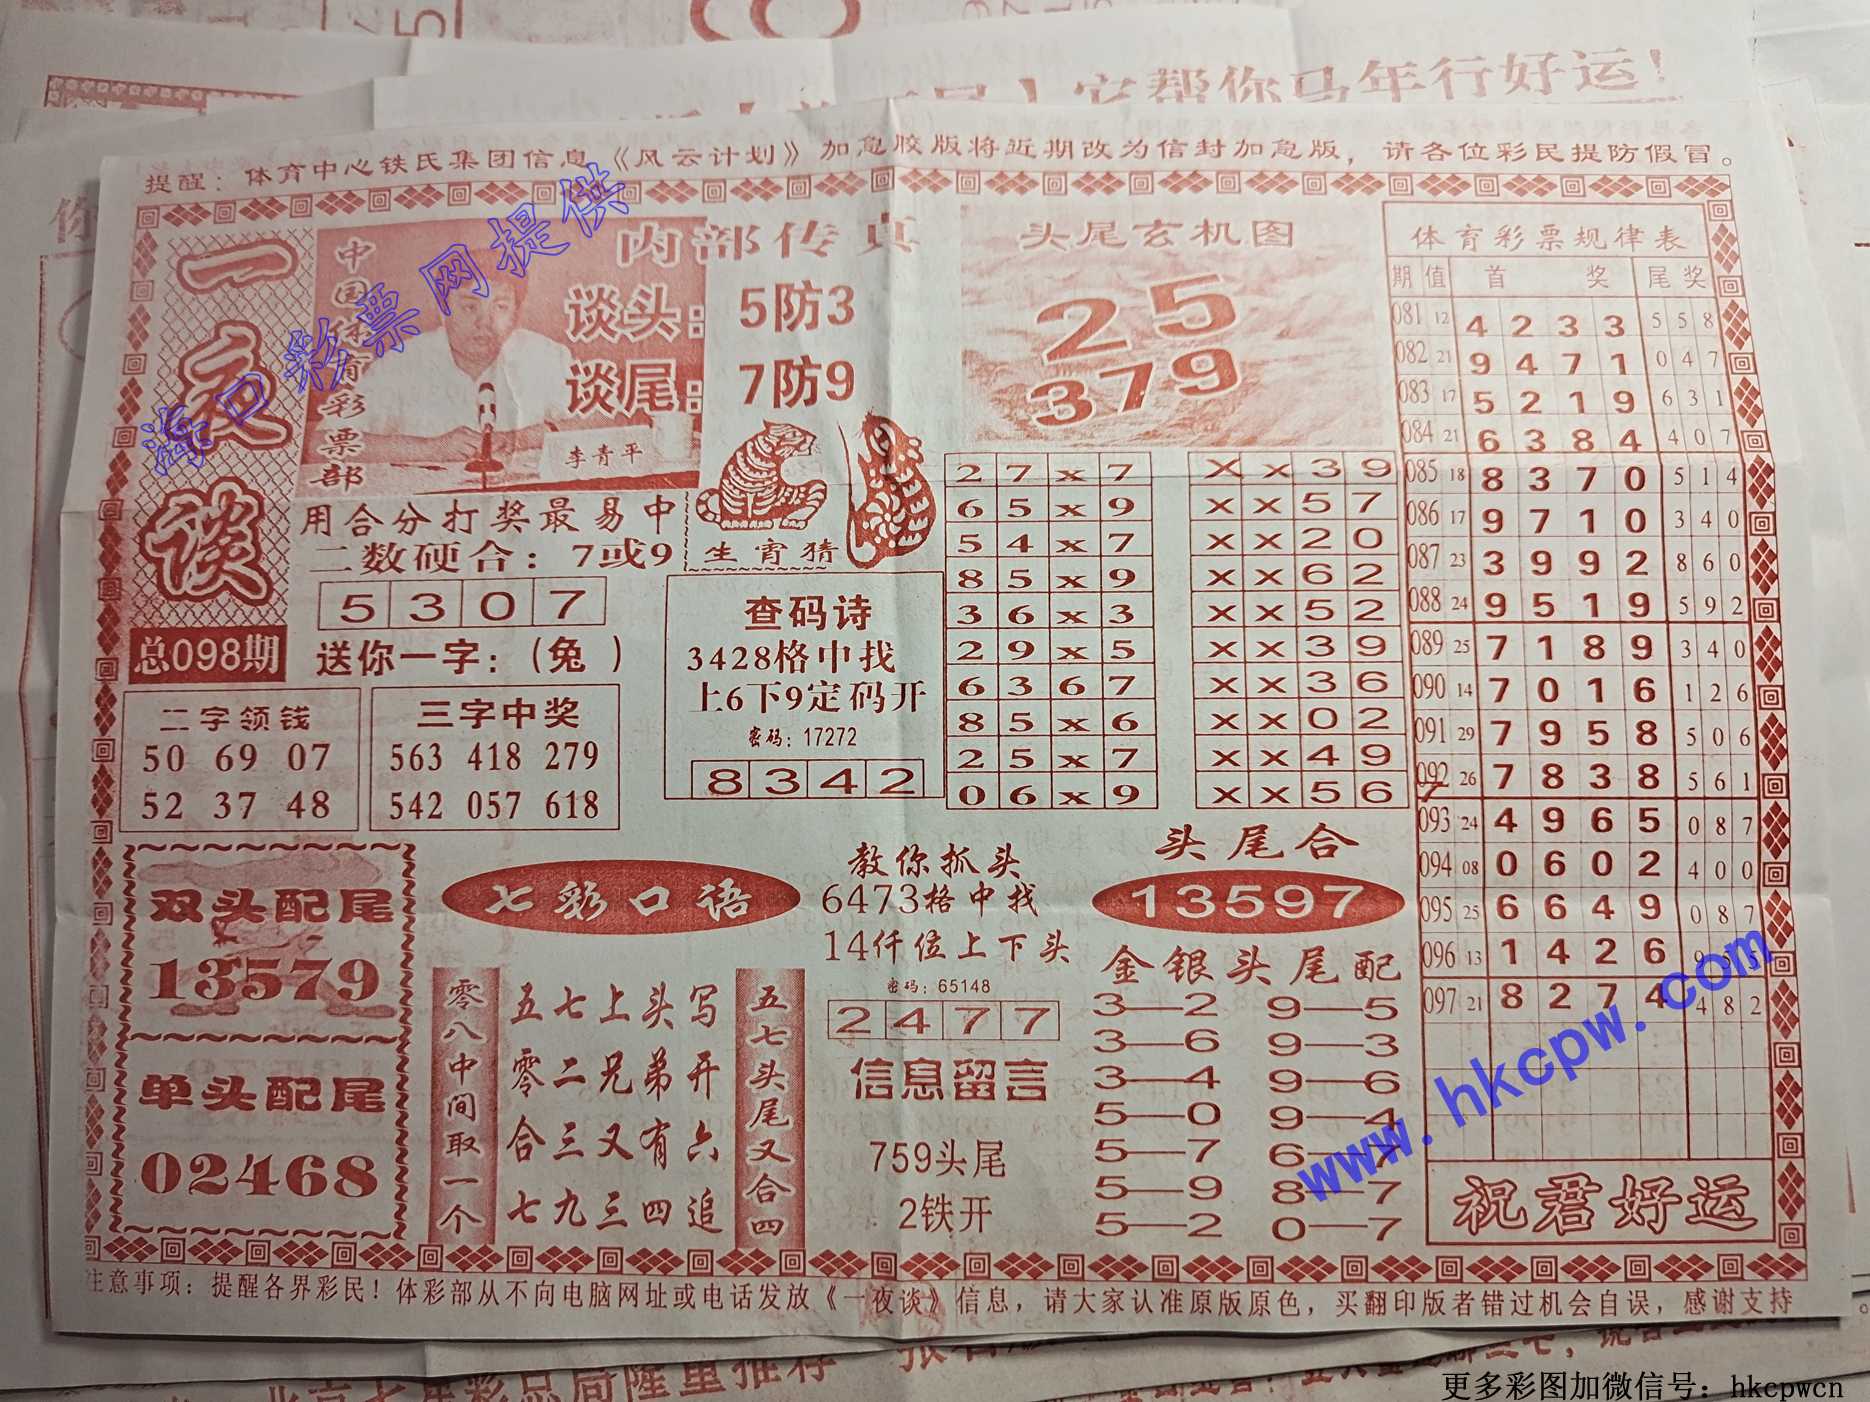 它帮你马年行好运！
提醒：体育中心铁氏集团信息《风云计划》加急胶版将近期改为信封加急版，请各位彩民提防假冒。
海口彩票网提供
一夜谈
总098期
中国体育彩票部
内部传真
谈头：5防3
谈尾：7防9
李青平
用合分打奖最易中
二数硬合：7或9
5 3 0 7
送你一字：（兔 ）
生宵猜
二字领钱
50 69 07
52 37 48
三字中奖
563 418 279
542 057 618
查码诗
3428格中找
上6下9定码开
密码：17272
8 3 4 2
头尾玄机图
25
379
2 7 x 7
6 5 x 9
5 4 x 7
8 5 x 9
3 6 x 3
2 9 x 5
6 3 6 7
8 5 x 6
2 5 x 7
0 6 x 9
X x 3 9
x x 5 7
x x 2 0
x x 6 2
x x 5 2
x x 3 9
x x 3 6
x x 0 2
x x 4 9
x x 5 6
体育彩票规律表
期 值 首 奖 尾 奖
081 12 4 2 3 3 5 5 8
082 21 9 4 7 1 0 4 7
083 17 5 2 1 9 6 3 1
084 21 6 3 8 4 4 0 7
085 18 8 3 7 0 5 1 4
086 17 9 7 1 0 3 4 0
087 23 3 9 9 2 8 6 0
088 24 9 5 1 9 5 9 2
089 25 7 1 8 9 3 4 0
090 14 7 0 1 6 1 2 6
091 29 7 9 5 8 5 0 6
092 26 7 8 3 8 5 6 1
093 24 4 9 6 5 0 8 7
094 08 0 6 0 2 4 0 0
095 25 6 6 4 9 0 8 7
096 13 1 4 2 6 9 5 5
097 21 8 2 7 4 4 8 2
祝君好运
双头配尾
13579
单头配尾
02468
七彩口语
零八中间取一个
五七上头写
零二兄弟开
合三又有六
七九三四追
五七头尾又合四
教你抓头
6473格中找
14仟位上下头
密码：65148
2 4 7 7
信息留言
759头尾
2铁开
头尾合
13597
金银头尾配
3—2 9—5
3—6 9—3
3—4 9—6
5—0 9—4
5—7 6—7
5—9 8—7
5—2 0—7
www.hkcpw.com
注意事项：提醒各界彩民！体彩部从不向电脑网址或电话发放《一夜谈》信息，请大家认准原版原色，买翻印版者错过机会自误，感谢支持
更多彩图加微信号：hkcpwcn